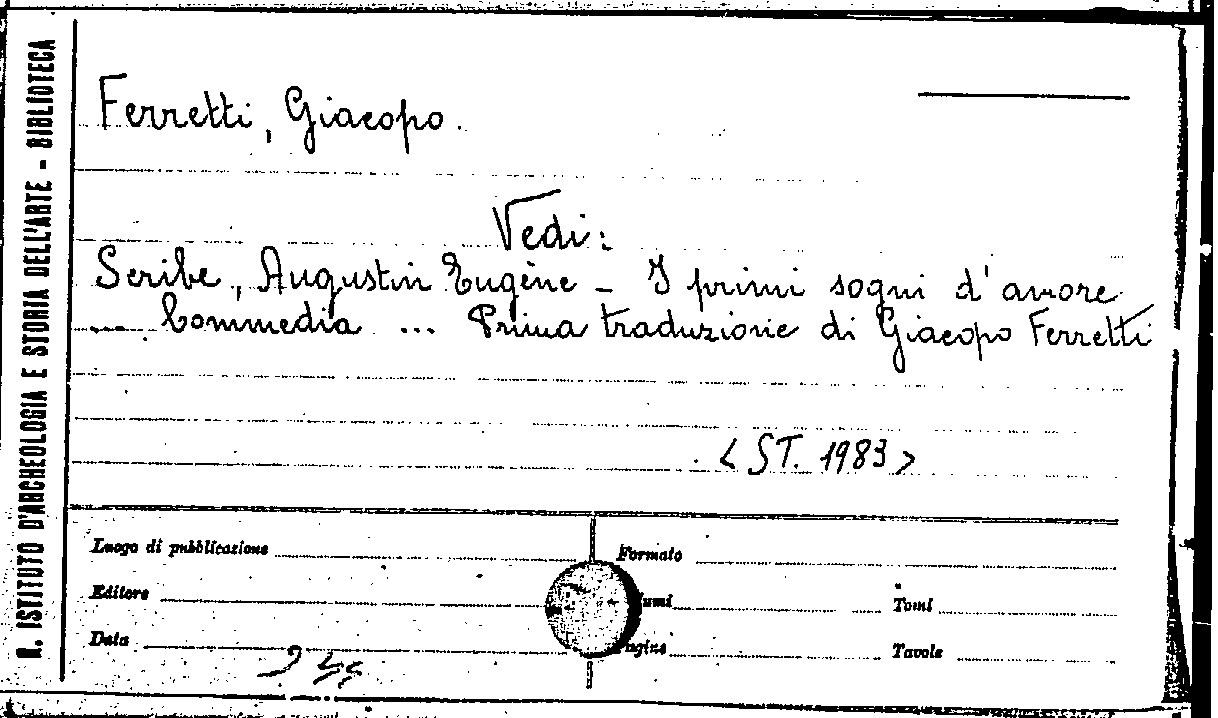 R. ISTITUTO D'ARCHEOLOGIA E STORIA DELL'ARTE - BIBLIOTECA
Ferretti, Giacopo.
Vedi:
Scribe, Augustin Eugène - I primi sogni d'amore
... Commedia ... Prima traduzione di Giacopo Ferretti
<ST. 1983>
Luogo di pubblicazione
Formato
Editore
Tomi
Data
Tavole